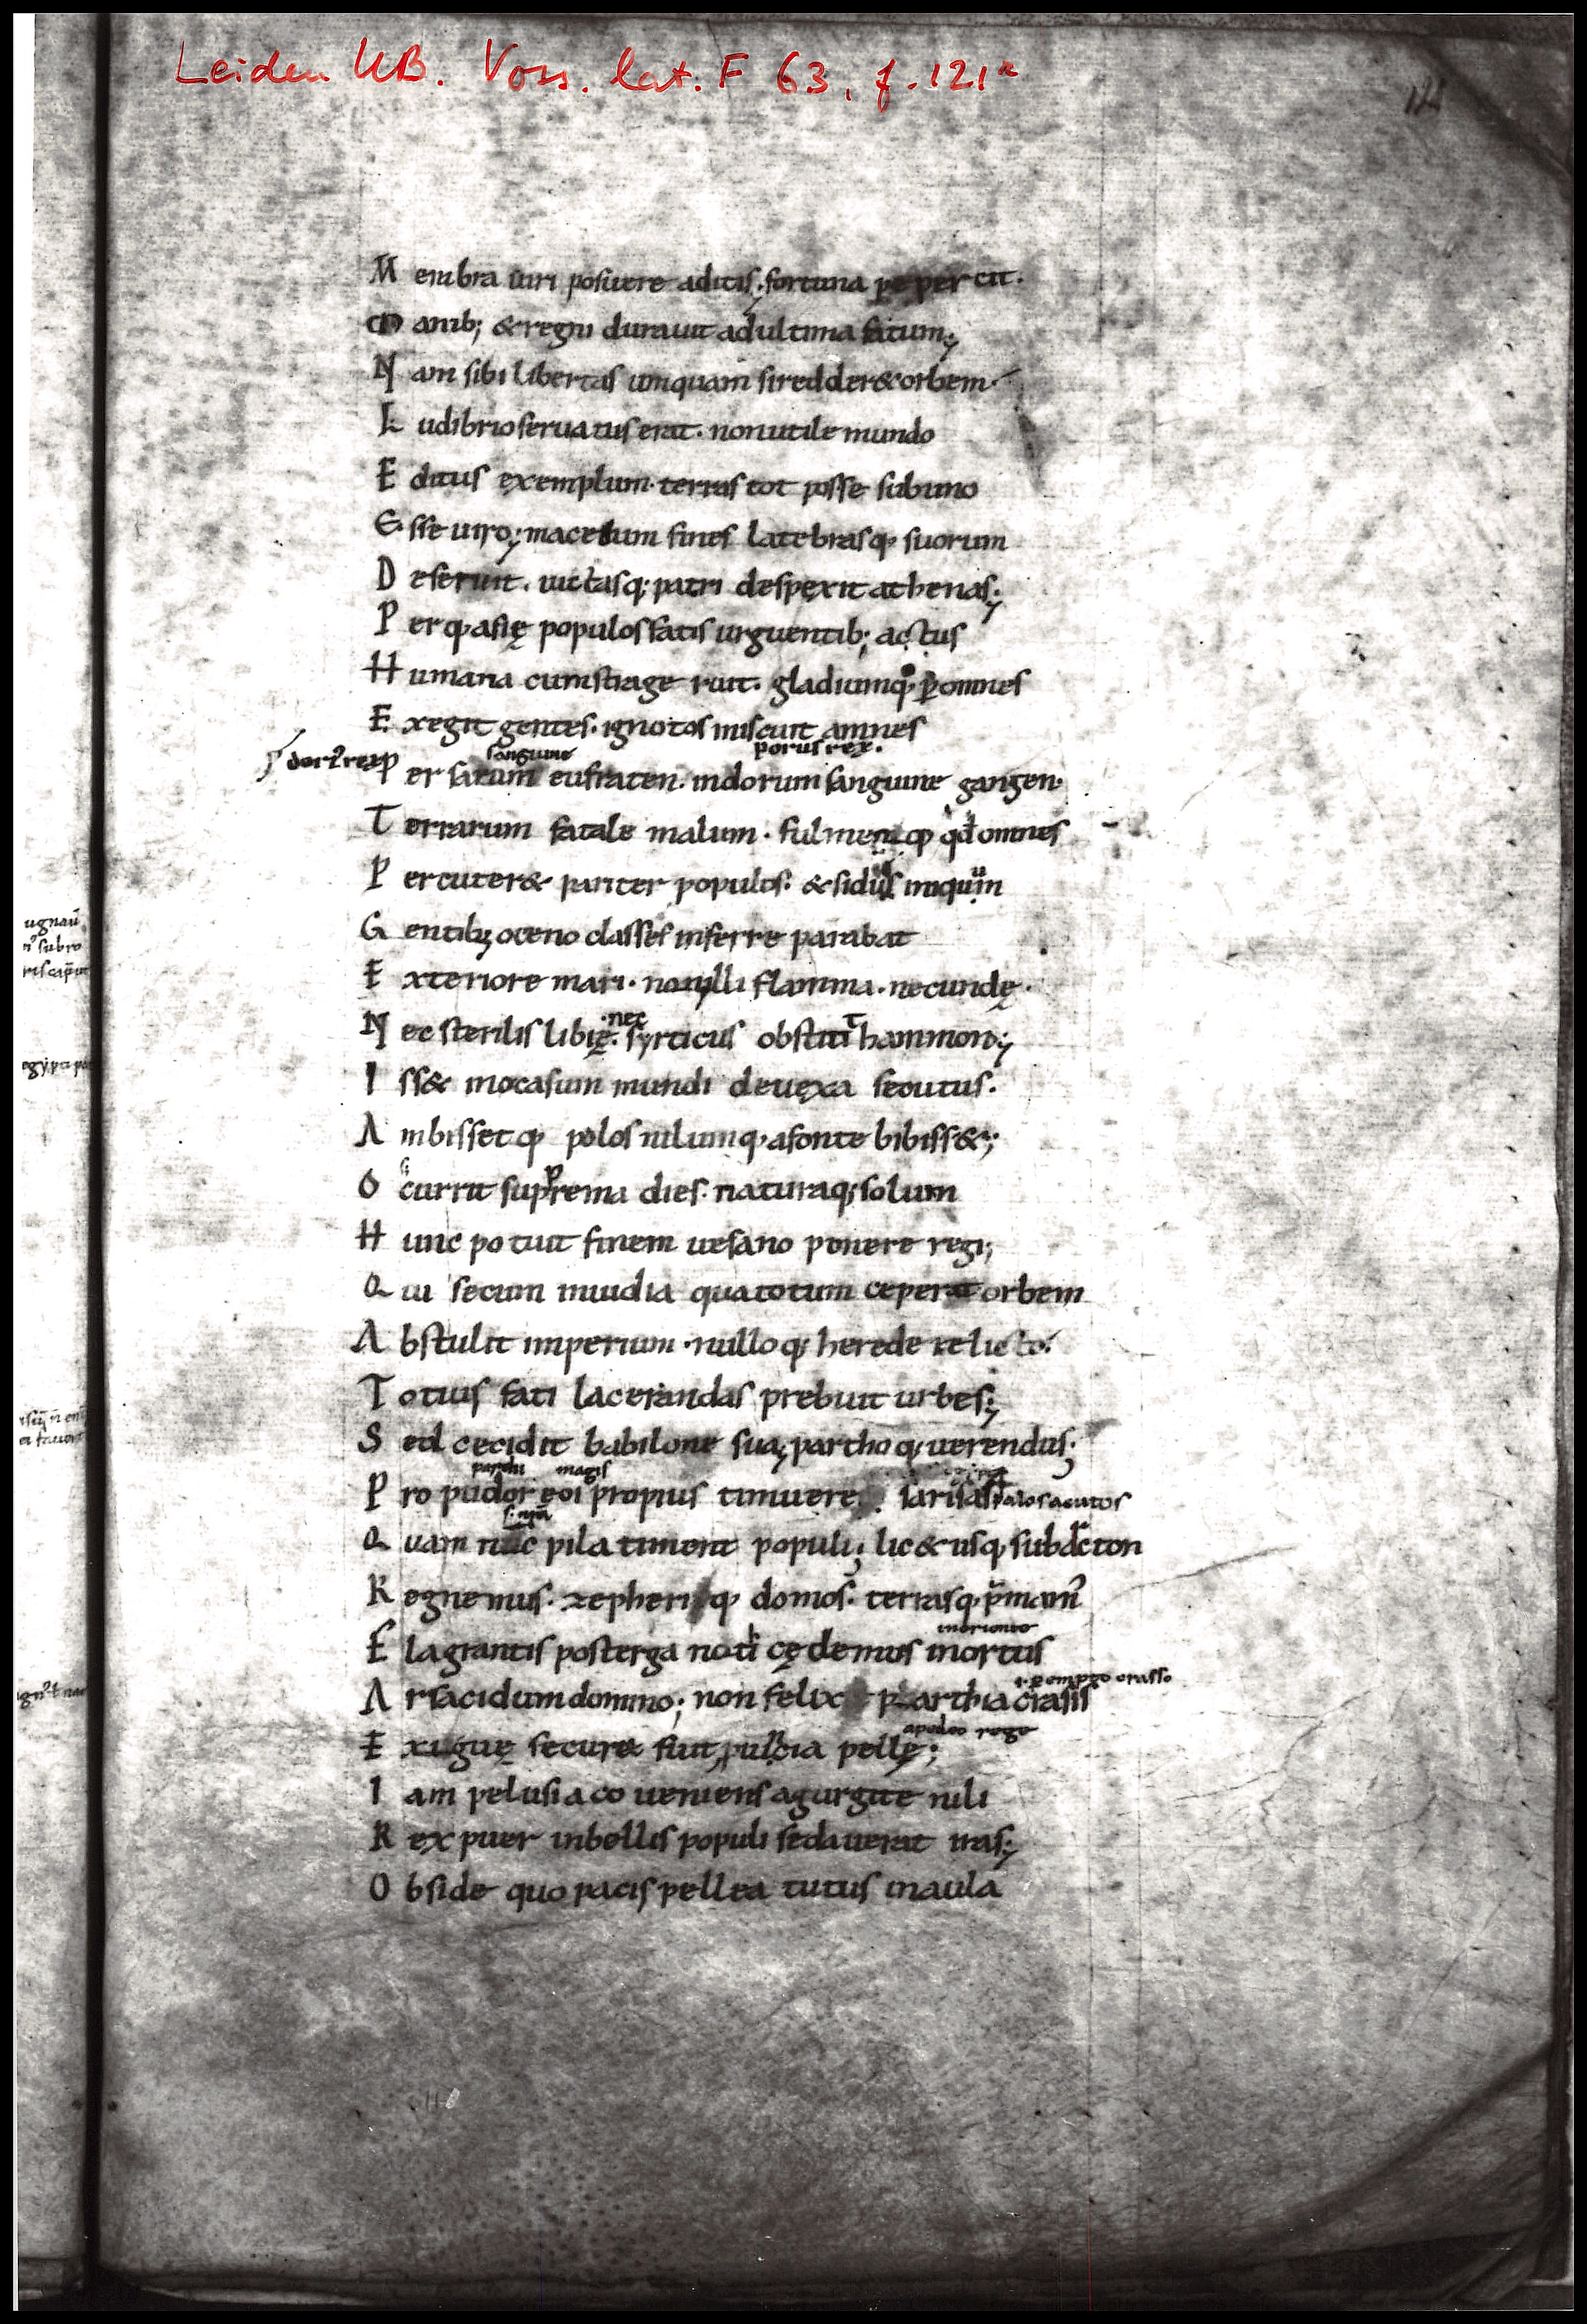 Leiden UB. Voss. lat. F 63, f. 121r
121
M embra uiri posuere aditis; fortuna pepercit.
M anib; & regni durauit ad ultima fatum;
N am sibi libertas umquam si redder& orbem.
L udibrio seruatus erat. non utile mundo
E ditus exemplum. terras tot posse sub uno
E sse uiro; macetum fines latebrasq; suorum
D eseruit. uictasq; patri despexit athenas;
P erq; asię populos fatis urguentib; actus
H umana cum strage ruit. gladiumq; p̲ omnes
E xegit gentes. ignotos miscuit amnes
sanguine porus rex.
P ersarum eufraten. indorum sanguine gangen.
T errarum fatale malum. fulmenq; qđ omnes
P ercuter& pariter populos. & sidus iniquum
G entib; oceno classes inferre parabat
E xteriore mari. non illi flamma. nec undę.
.nec t
N ec sterilis libię. syrticus obstitit hammon;
I ss& inocasum mundi deuexa secutus.
A mbissetq; polos nilumq; a fonte bibiss&;
O ccurrit suprema dies. naturaq; solum
H unc potuit finem uesano ponere regi;
Q ui secum inuidia qua totum ceperat orbem
A bstulit imperium. nulloq; herede relicto.
T otius fati lacerandas prebuit urbes;
S ed cecidit babilone sua; parthoq; uerendus;
parthi magis
P ro pudor eoi propius timuere sarisas palos acutos
Q uam nunc pila timent populi; lic& usq; sub arcton
R egnemus. zepheriq; domos. terrasq; p̄mam᾽
moriente
F lagrantis post terga noti cędemus in ortus
perempto crasso
A rsacidum domino; non felix parthia crasis
rege
E xiguę secura fuit puincia pellę;
I am pelusiaco ueniens a gurgite nili
R ex puer inbellis populi sedauerat iras;
O bside quo pacis pellea tutus in aula